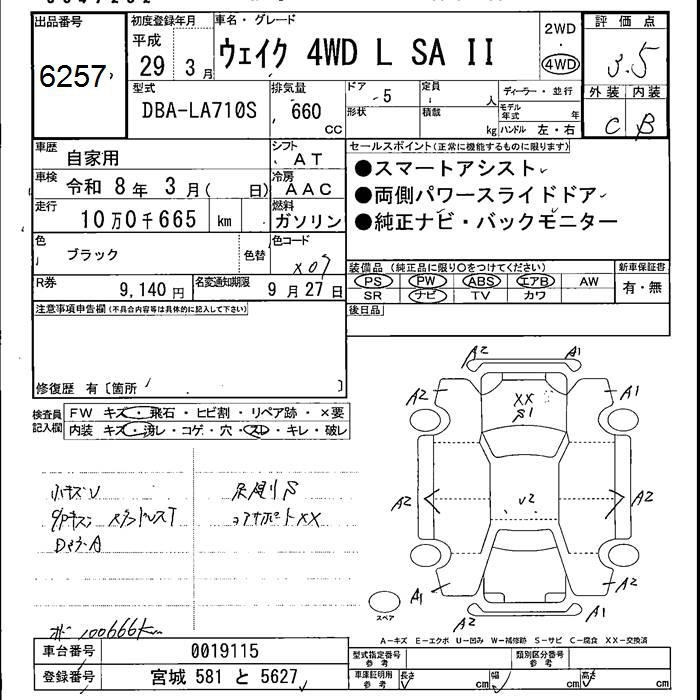 出品番号
6257
初度登録年月
平成
29 3月
車名・グレード
ウェイク 4WD L SA II
2WD
・
4WD
評価点
3.5
外装 内装
C B
型式
DBA-LA710S
排気量
660
cc
ドア
5
形状
定員
人
積載
kg
ディーラー・並行
モデル年式 年
ハンドル 左・右
車歴
自家用
シフト
AT
車検
令和 8年 3月( 日)
冷房
AAC
走行
10万0千665 km
燃料
ガソリン
色
ブラック
色替
色コード
X07
R券
9,140円
名変通知期限
9月27日
セールスポイント(正常に機能するものに限ります)
●スマートアシスト
●両側パワースライドドア
●純正ナビ・バックモニター
装備品(純正品に限り○をつけてください)
PS PW ABS エアB AW
SR ナビ TV カワ
新車保証書
有・無
後日品
注意事項申告欄(不具合内容等は具体的に記入して下さい)
修復歴 有〔箇所 〕
検査員
記入欄
FW キズ・飛石・ヒビ割・リペア跡・×要
内装 キズ・汚レ・コゲ・穴・スレ・キレ・破レ
小キズU
100666km
A2 A1
A2 A1
XX
S1
A2 A2
U2
A1 A2
A2 A1
スペア
A-キズ E-エクボ U-凹み W-補修跡 S-サビ C-腐食 XX-交換済
車台番号
0019115
登録番号
宮城 581 と 5627
型式指定番号
参考
類別区分番号
参考
車庫証明用
参考
長さ cm
幅 cm
高さ cm